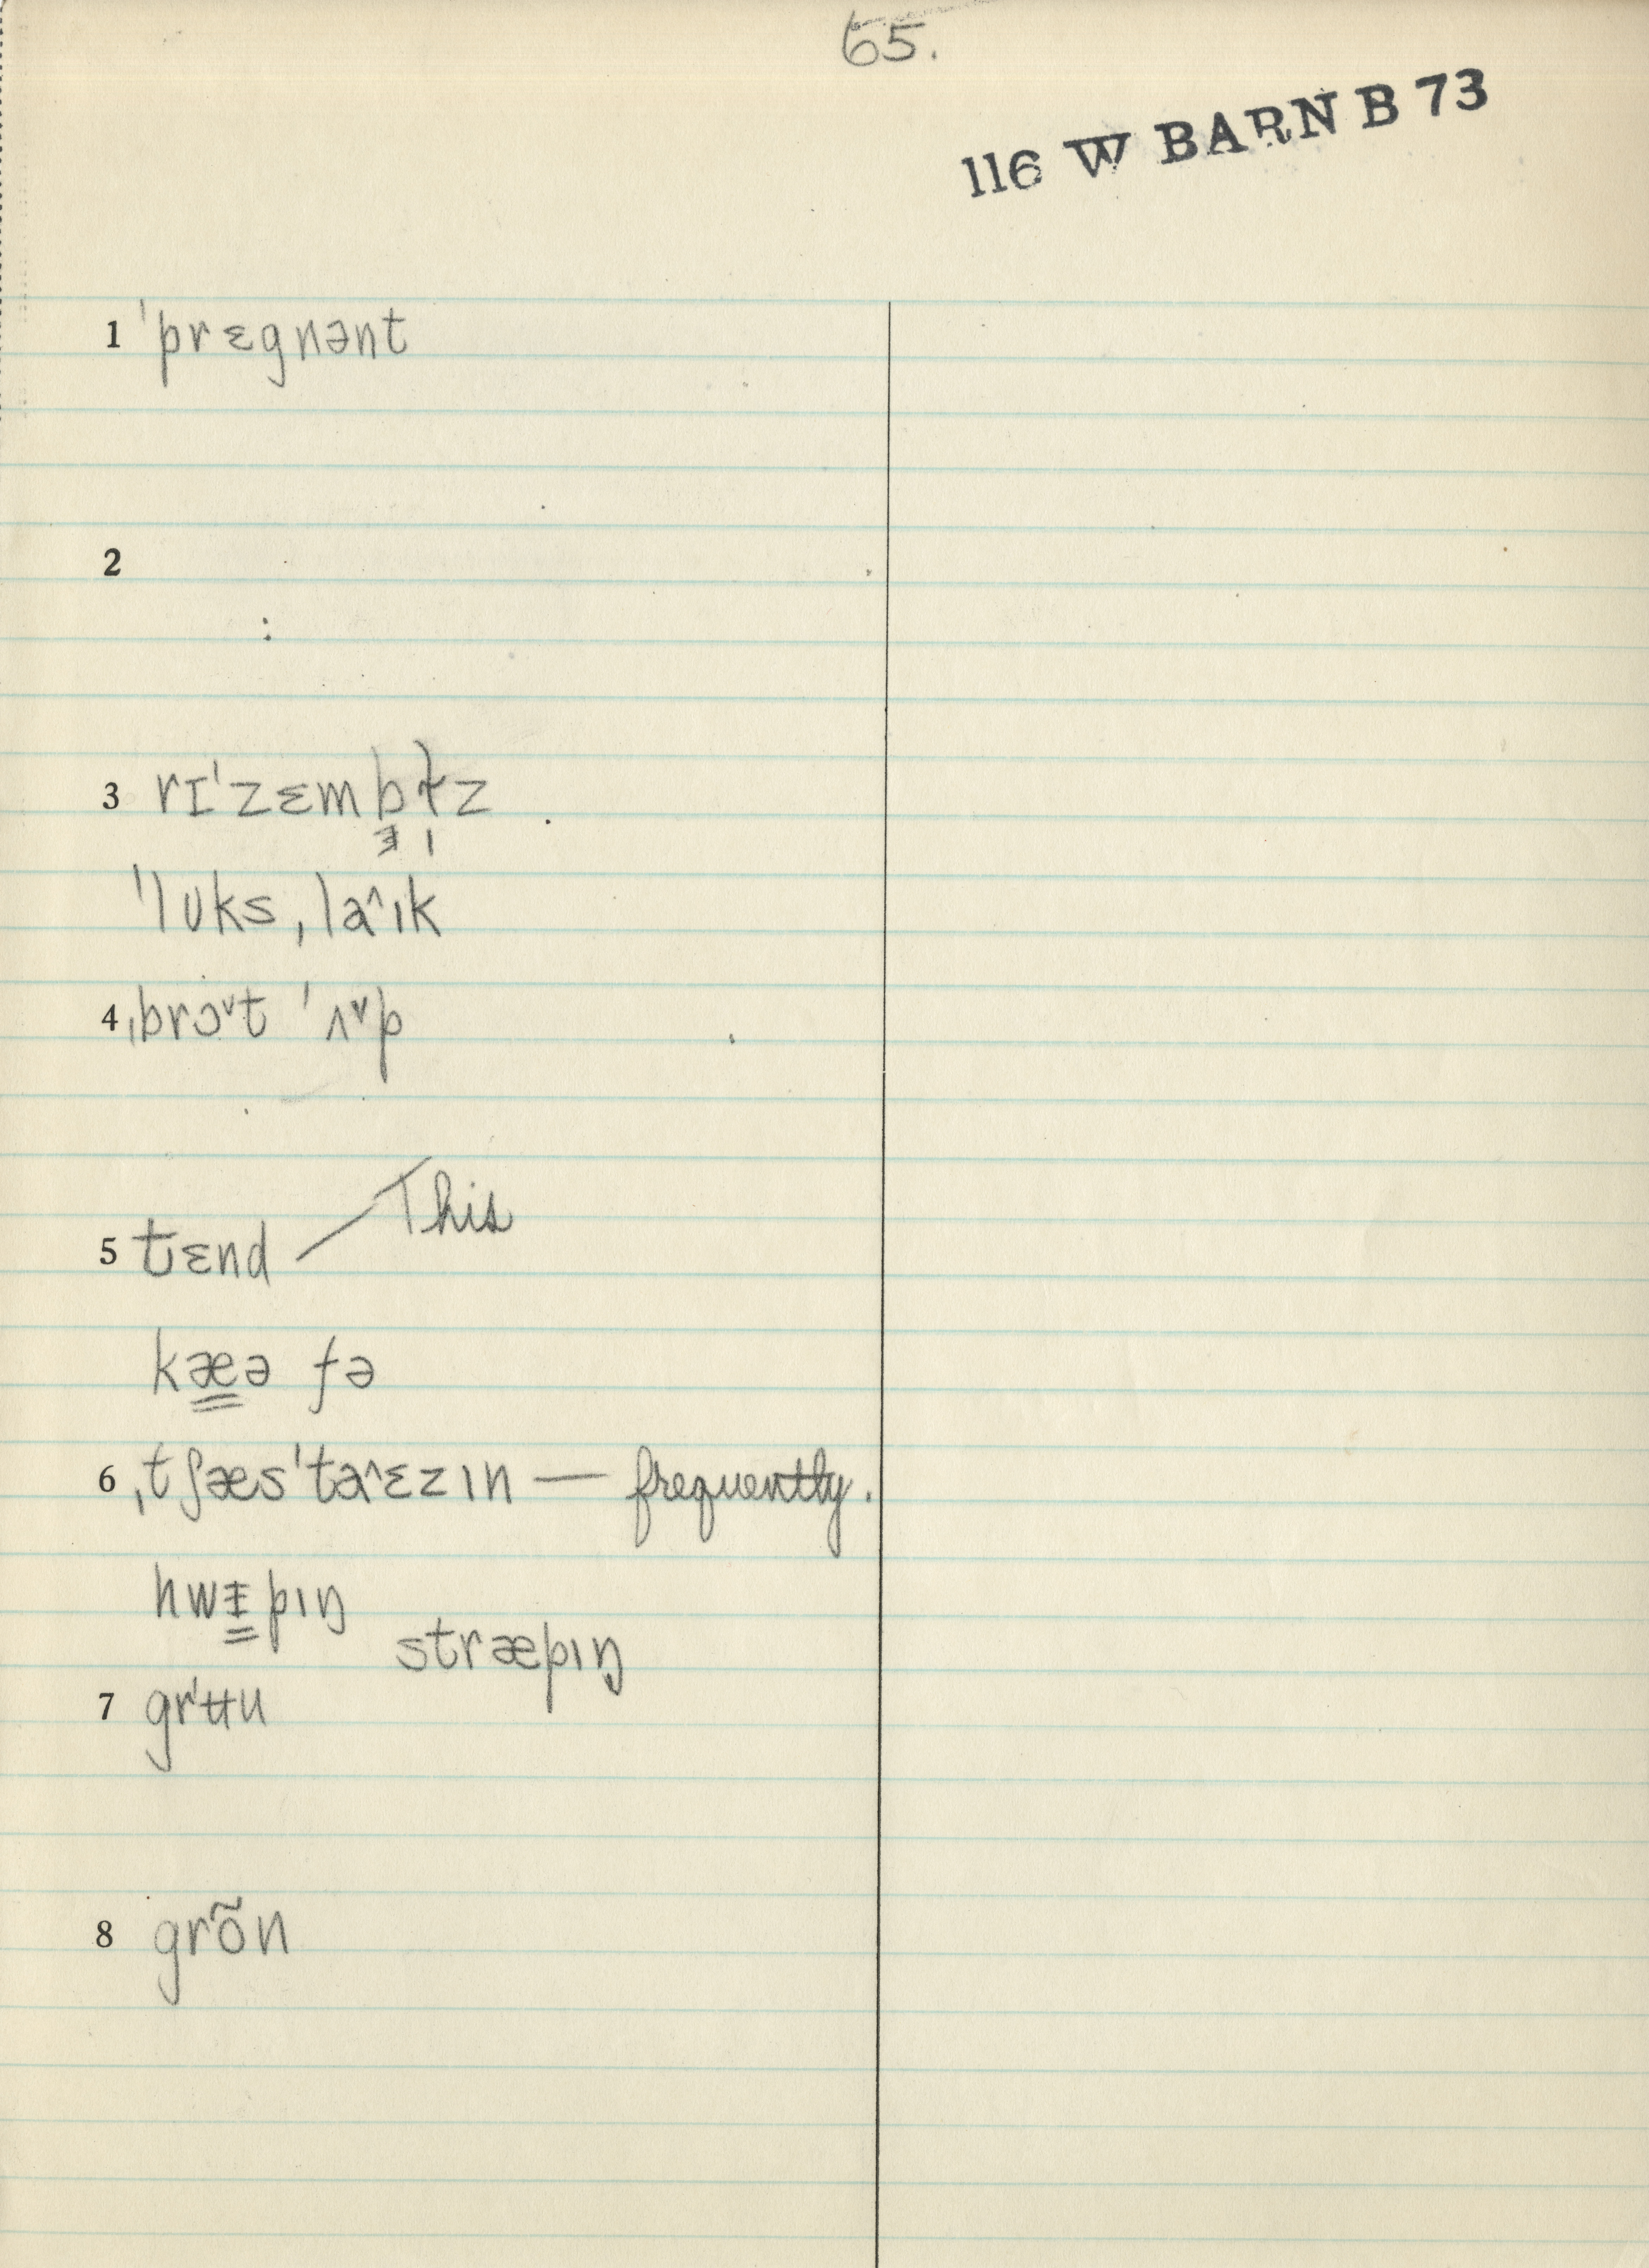 65.
116 W BARN B 73
1 ˈprɛgnənt
2
:
3 rɪˈzɛmbɫ̩z
ˈlʊks ˌlaˆɪk
4 ˌbrɔˇt ˈʌˇp
5 tɛnd — This
kæ̳ə fə
6 ˌtʃæsˈtaˆɛzɪn — frequently.
hwɪ̳pɪŋ
stræpɪŋ
7 grʹʉu
8 grõn